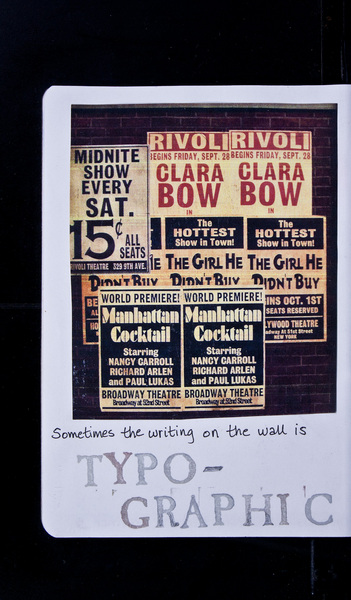 MIDNITE
SHOW
EVERY
SAT.
15¢ ALL
SEATS
RIVOLI THEATRE 329 9TH AVE.
RIVOLI
BEGINS FRIDAY, SEPT. 28
CLARA
BOW
IN
The
HOTTEST
Show in Town!
THE GIRL HE
DIDN'T BUY
RIVOLI
BEGINS FRIDAY, SEPT. 28
CLARA
BOW
IN
The
HOTTEST
Show in Town!
THE GIRL HE
DIDN'T BUY
INS OCT. 1ST
SEATS RESERVED
LYWOOD THEATRE
adway At 51st Street
NEW YORK
WORLD PREMIERE!
Manhattan
Cocktail
Starring
NANCY CARROLL
RICHARD ARLEN
and PAUL LUKAS
BROADWAY THEATRE
Broadway at 52nd Street
WORLD PREMIERE!
Manhattan
Cocktail
Starring
NANCY CARROLL
RICHARD ARLEN
and PAUL LUKAS
BROADWAY THEATRE
Broadway at 52nd Street
Sometimes the writing on the wall is
TYPO-
GRAPHIC